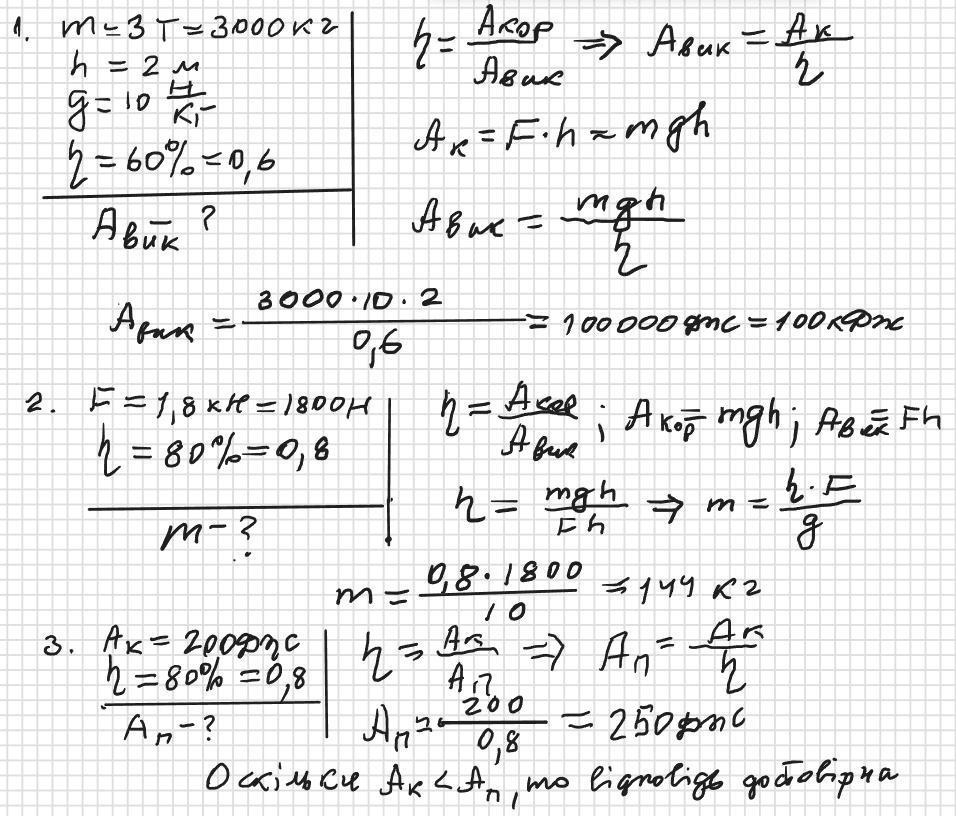 1. m = 3 т = 3000 кг
h = 2 м
g = 10 Н/кг
η = 60% = 0,6
Aвик - ?
η = Aкор/Aвик ⇒ Aвик = Aк/η
Aк = F·h = mgh
Aвик = mgh/η
Aвик = 3000·10·2/0,6 = 100000 Дж = 100 кДж
2. F = 1,8 кН = 1800 Н
η = 80% = 0,8
m - ?
η = Aкор/Aвик ; Aкор = mgh ; Aвик = Fh
η = mgh/Fh ⇒ m = η·F/g
m = 0,8·1800/10 = 144 кг
3. Aк = 200 Дж
η = 80% = 0,8
Aп - ?
η = Aк/Aп ⇒ Aп = Aк/η
Aп = 200/0,8 = 250 Дж
Оскільки Aк < Aп, то відповідь достовірна